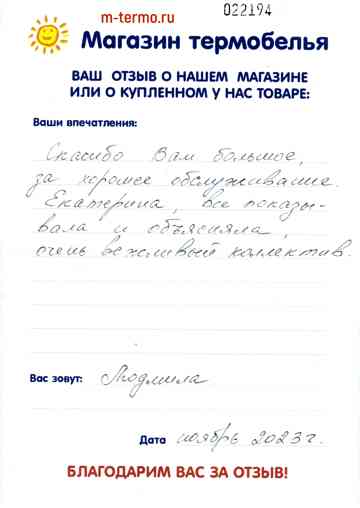 m-termo.ru
022194
Магазин термобелья
ВАШ ОТЗЫВ О НАШЕМ МАГАЗИНЕ
ИЛИ О КУПЛЕННОМ У НАС ТОВАРЕ:
Ваши впечатления:
Спасибо Вам большое,
за хорошее обслуживание.
Екатерина, все показы-
вала и объясняла,
очень вежливый коллектив.
Вас зовут: Людмила
Дата ноябрь 2023 г.
БЛАГОДАРИМ ВАС ЗА ОТЗЫВ!